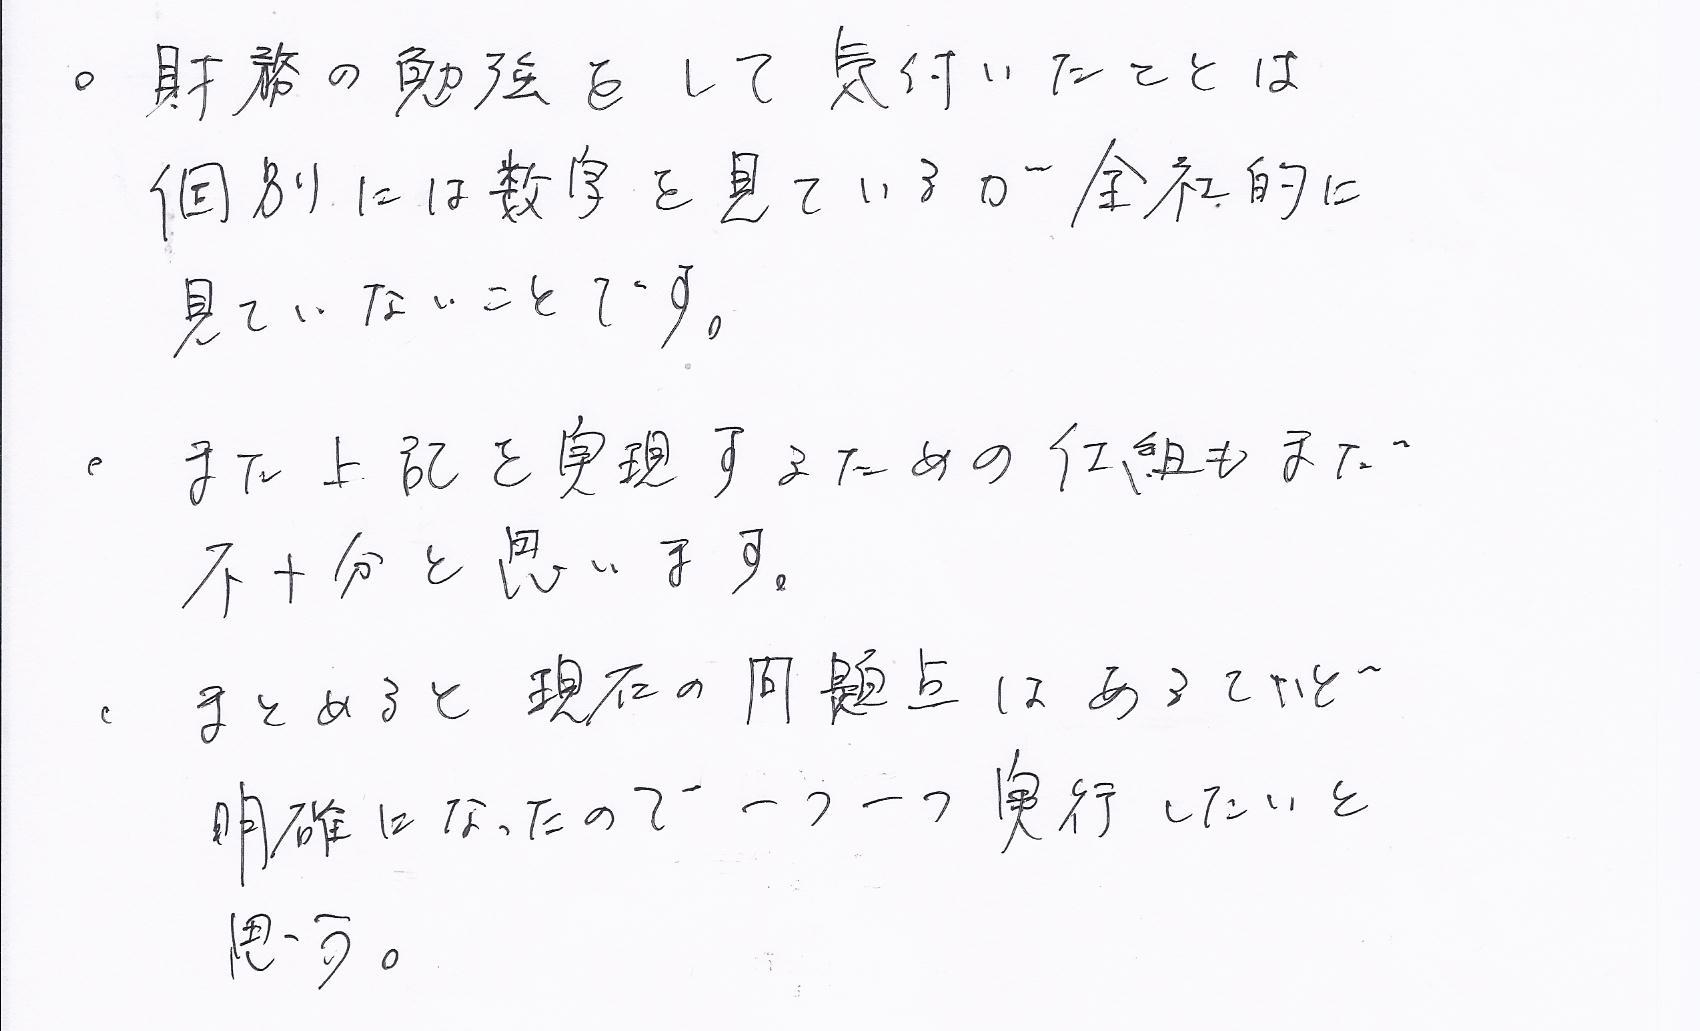 ○ 財務の勉強をして気付いたことは
個別には数字を見ているが全社的に
見ていないことです。
○ また上記を実現するための仕組もまだ
不十分と思います。
○ まとめると現在の問題点はあるていど
明確になったので一つ一つ実行したいと
思う。